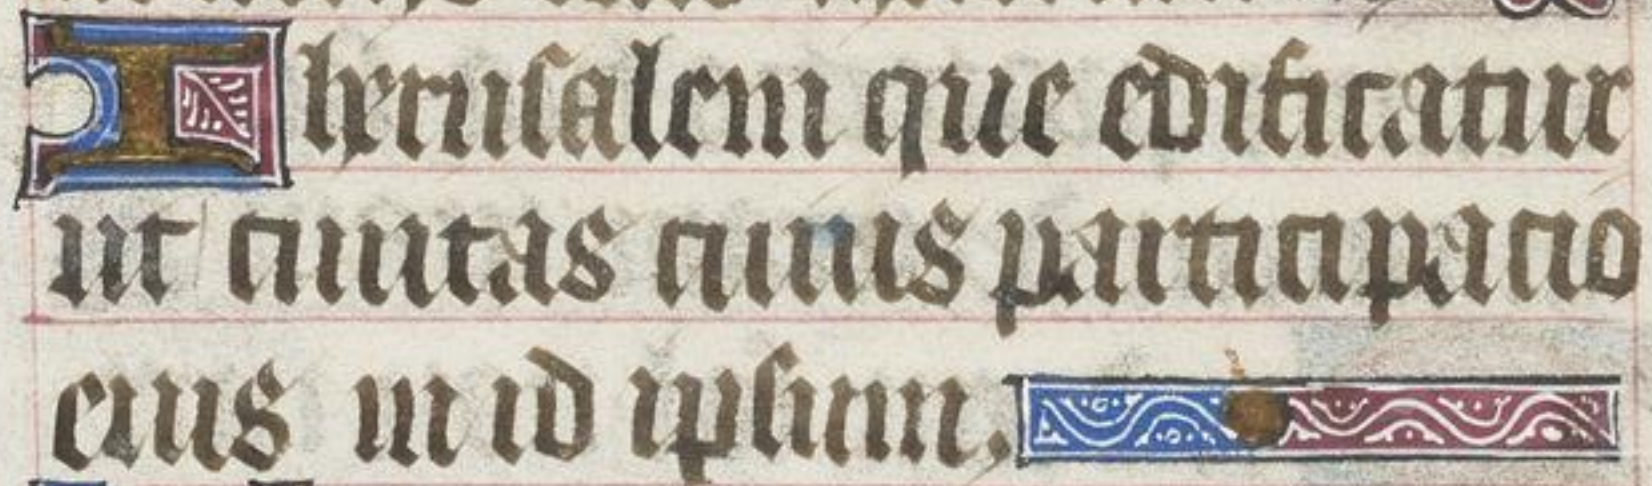 Iherusalem que edificatur
ut ciuitas cuius participatio
eius in id ipsum.